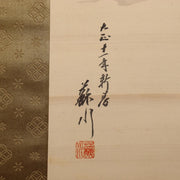 大正十一年新春
蘇川